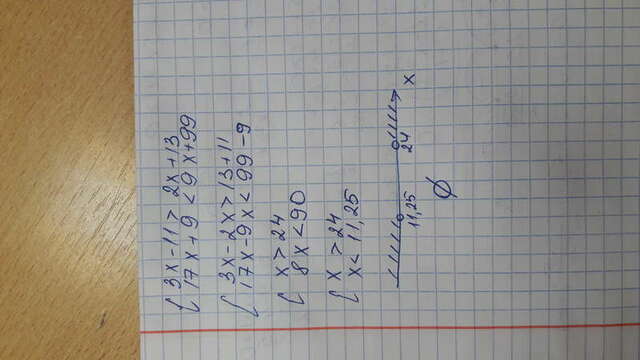 { 3x-11 > 2x+13
17x+9 < 9x+99
{ 3x-2x > 13+11
17x-9x < 99-9
{ x > 24
8x < 90
{ x > 24
x < 11,25
11,25 24 x
∅